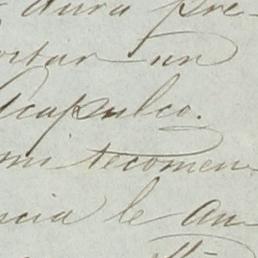 dura pre-
ortar un
Acapulco.
mi recomen-
cia le au-